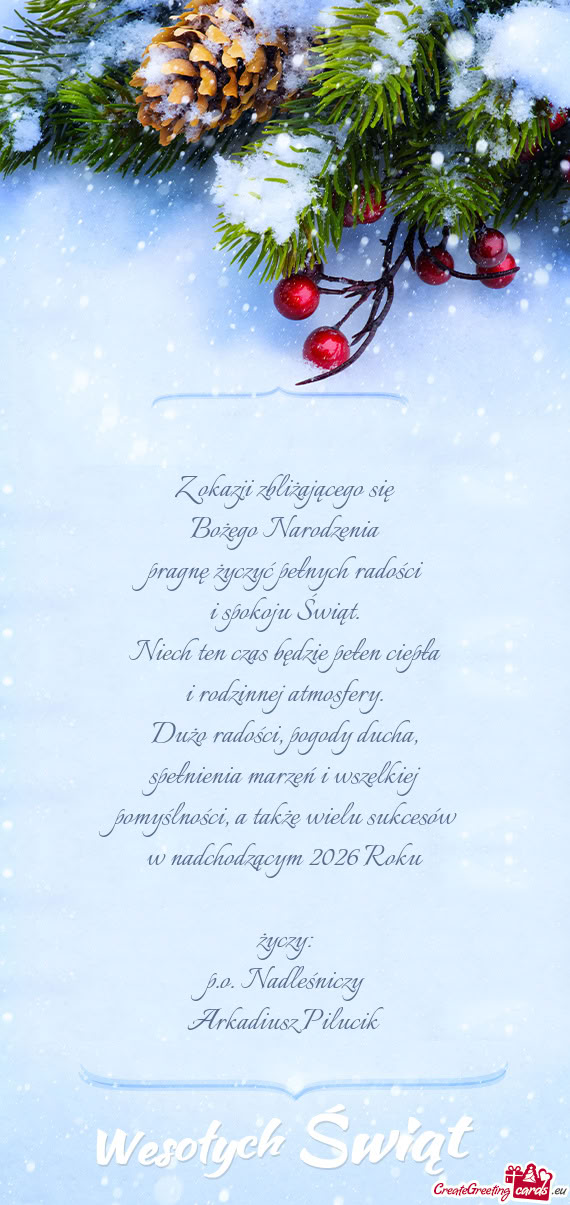 Z okazji zbliżającego się
Bożego Narodzenia
pragnę życzyć pełnych radości
i spokoju Świąt.
Niech ten czas będzie pełen ciepła
i rodzinnej atmosfery.
Dużo radości, pogody ducha,
spełnienia marzeń i wszelkiej
pomyślności, a także wielu sukcesów
w nadchodzącym 2026 Roku
życzy:
p.o. Nadleśniczy
Arkadiusz Pilucik
Wesołych Świąt
CreateGreeting cards .eu